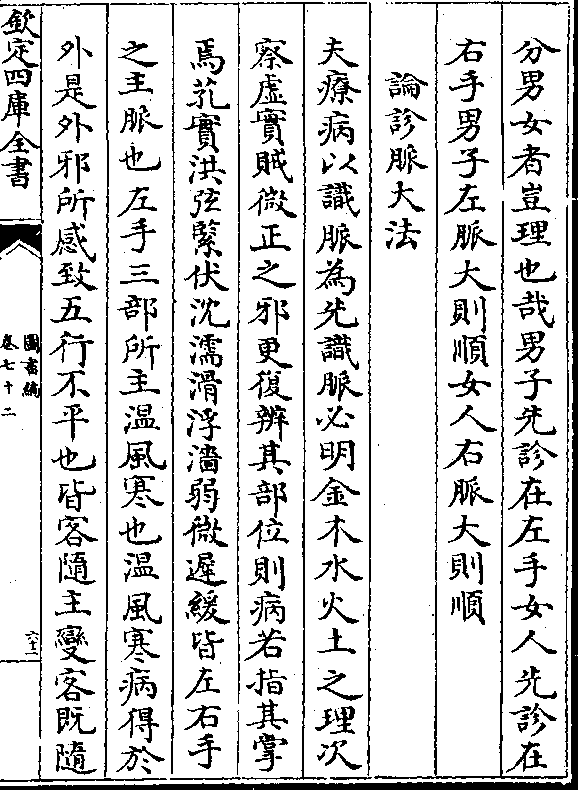 分男女者豈理也哉男子先診在左手女人先診在
右手男子左脈大則順女人右脈大則順
論診脈大法
夫療病以識脈為先識脈必明金木水火土之理次
察虛實賊微正之邪更復辨其部位則病若指其掌
焉芤實洪弦緊伏沈濡滑浮濇弱微遲緩皆左右手
之主脈也左手三部所主温風寒也温風寒病得於
外是外邪所感致五行不平也皆客隨主變客既隨
欽定四庫全書
圖書編
卷七十二
六十二